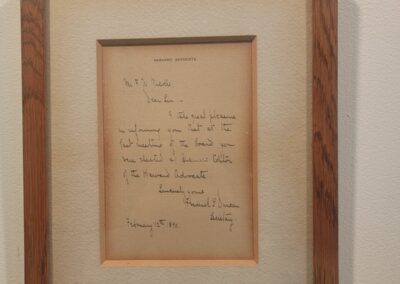 HARVARD ADVOCATE
Mr. F. W.
Dear Sir -
I take great pleasure
in informing you that at the
last meeting of the board you
were elected a Business Editor
of the Harvard Advocate
Sincerely yours
Secretary
February 12th